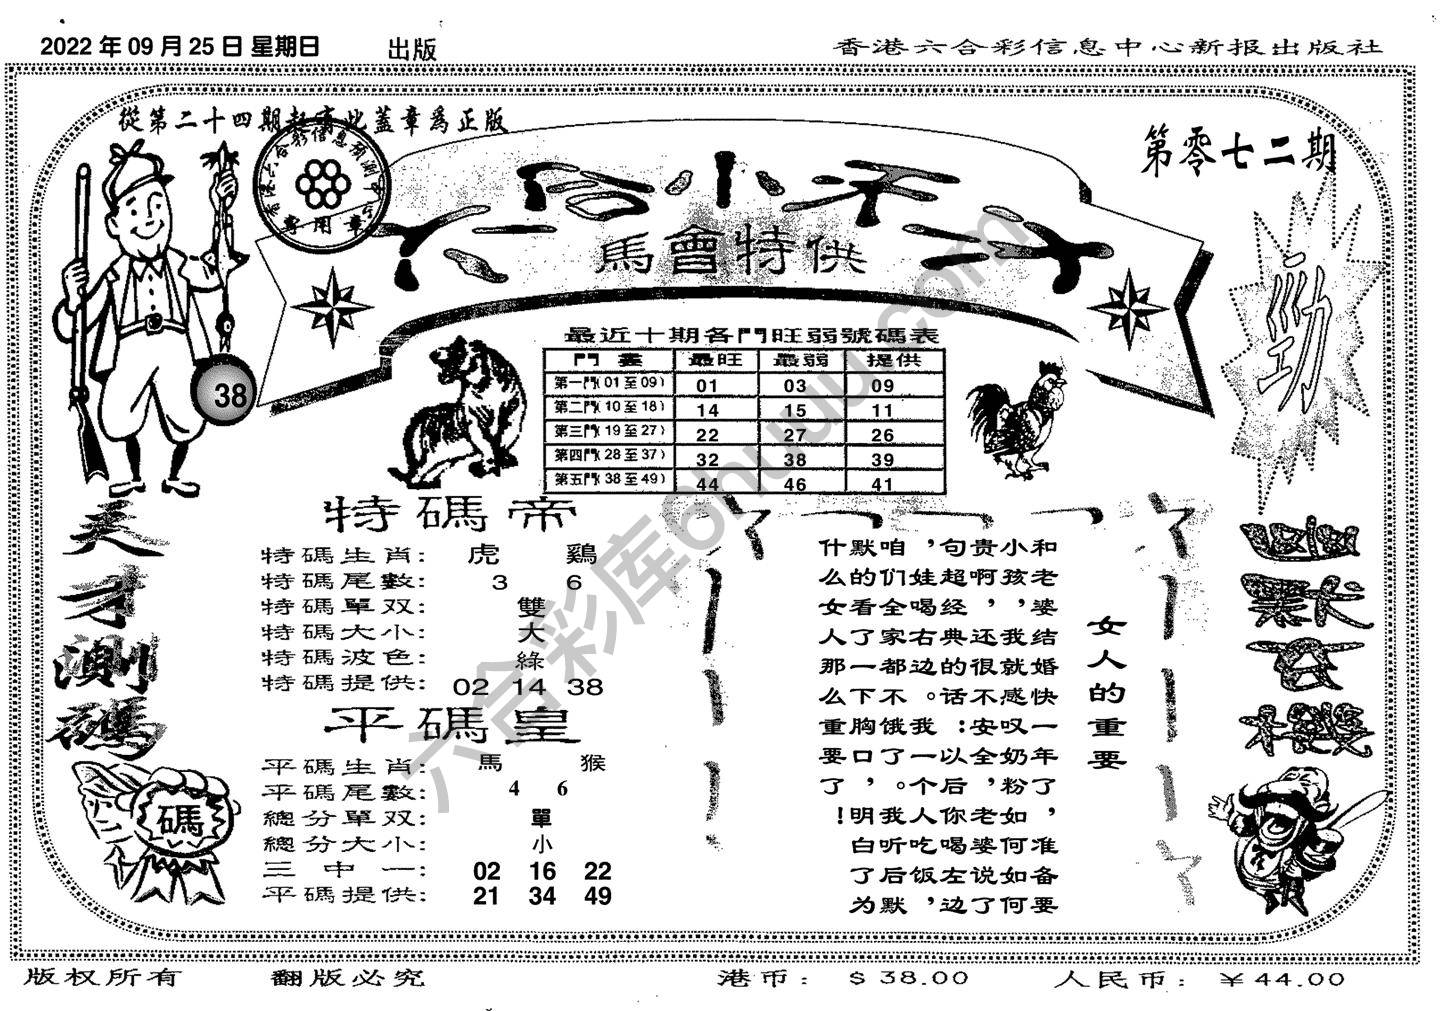 2022 年 09 月 25 日 星期日 出版
香港六合彩信息中心新报出版社
從第二十四期起有此蓋章爲正版
第零七二期
馬會特供
專用章
勁
38
最近十期各門旺弱號碼表
門 最旺 最弱 提供
第一門(01 至 09) 01 03 09
第二門(10 至 18) 14 15 11
第三門(19 至 27) 22 27 26
第四門(28 至 37) 32 38 39
第五門(38 至 49) 44 46 41
天才測碼
碼
特碼帝
特碼生肖: 虎 鷄
特碼尾數: 3 6
特碼單双: 雙
特碼大小: 大
特碼波色: 綠
特碼提供: 02 14 38
平碼皇
平碼生肖: 馬 猴
平碼尾數: 4 6
總分單双: 單
總分大小: 小
三中一: 02 16 22
平碼提供: 21 34 49
女人的重要
和老婆结婚快一年了,准备要
小孩,我就感叹奶粉如何如何
贵啊,还很不安全,老婆说了
句超经典的话:以后你喝左边
,娃喝右边。我一个人喝饭,
咱们全家都不饿了。我听后默
默的看了一下胸口,明白了为
什么女人那么重要了!
六合彩库6huuu.com
版权所有 翻版必究 港币: $ 38.00 人民币: ¥ 44.00